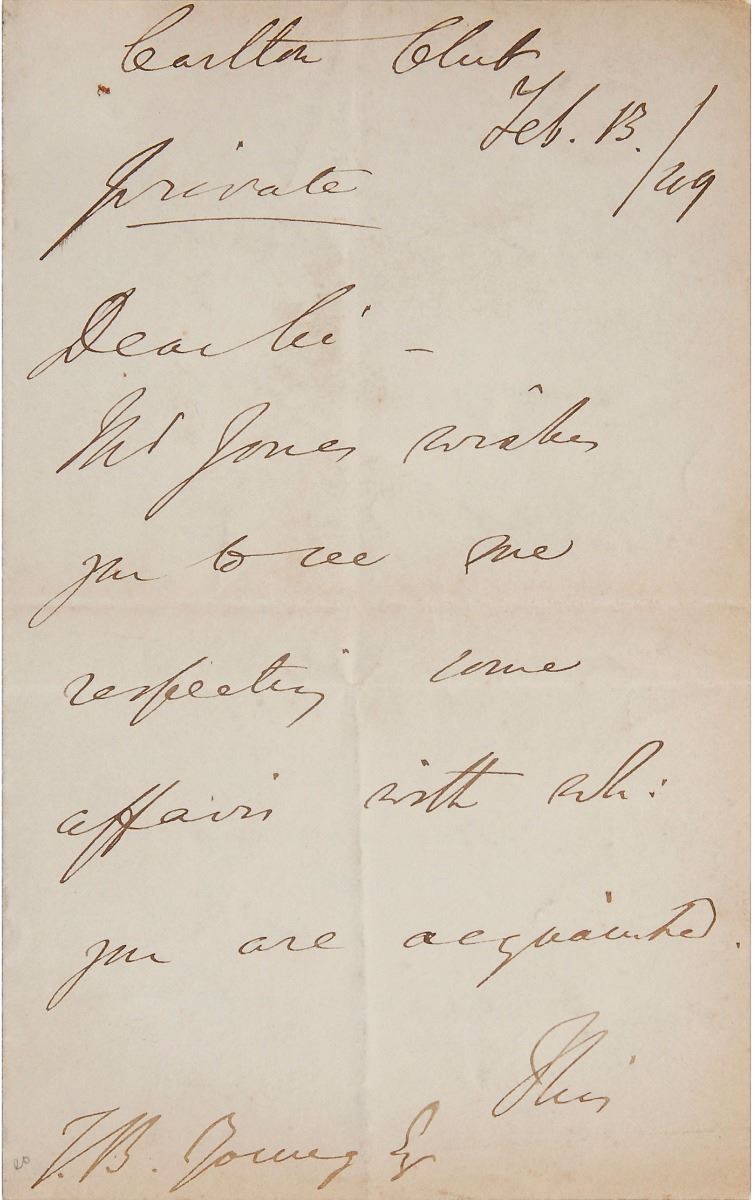 Carlton Club
Feb. 13.
/49
private
Dear Sir –
Mr Jones wishes
you to see me
respecting some
affairs with wh:
you are acquainted.
This
T. B. Young Esq